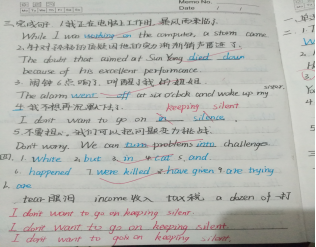 Memo No.
Date / /
三.完成句子 1我正在电脑上工作时,暴风雨来临了.
While I was working on the computer, a storm came.
2.针对孙杨的质疑因他的完
The doubt that aimed at Sun Yang died down
because of his excellent performance.
3. 闹钟6点响了,叫醒了我的姐姐.
The alarm went off at six o'clock and woke up my
sister.
4 我不想再沉默下去了. keeping silent
I don't want to go on in silence.
5.不要担心,我们可以把问题变为挑战.
Don't worry. We can turn problems into challenges.
四. 1. White 2. but 3. in 4. at 5. and
6. happened 7. were killed 8. have given 9. are trying
are
tear 眼泪 income 收入 tax 税 a dozen of 一打
I don't want to go on keeping silent
I don't want to go on keeping silent
I don't want to go on keeping silent.